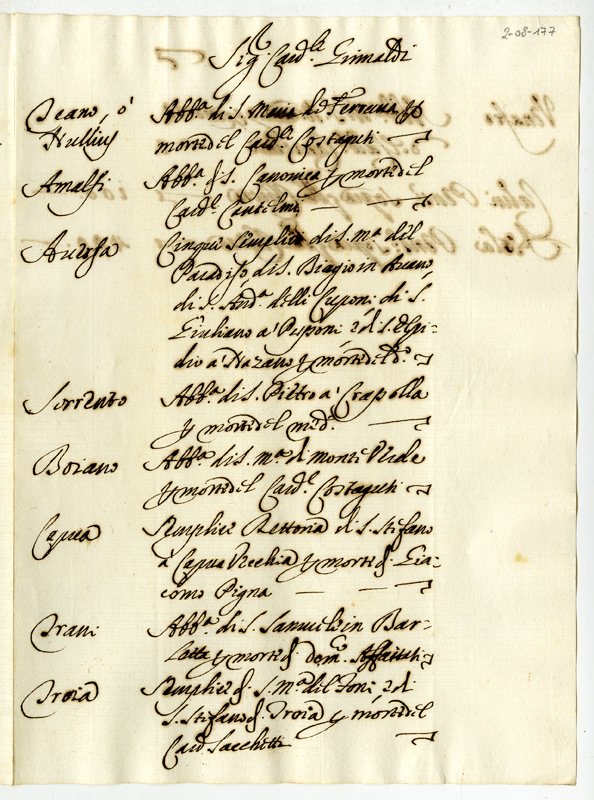 2-08-177
Sig.r Card.le Grimaldi
Teano, ò Abb.a di S. Maria de Ferraria p
Nullius morte del Card.le Costaguti
Amalfi Abb.a di S. Canonica p morte del
Card.le Cantelmi
Aversa Cinque Semplici di S. M.a del
Paradiso di S. Biagio in
di S. And.a delli di S.
Giuliano a' e di S. Egi-
dio a' p morte del d.o
Sorrento Abb.a di S. Pietro a' Crapolla
p morte del med.o
Boiano Abb.a di S. M.a di Monte Verde
p morte del Card.le Costaguti
Capua Semplice Rettoria di S. Stefano
a Capua Vecchia p morte di Gia-
como Pigna
Trani Abb.a di S. Samuele in Bar-
letta p morte di Dom.co Affaitati
Troia Semplice di S. M.a del e di
S. Stefano di Troia p morte del
Card Sacchetti